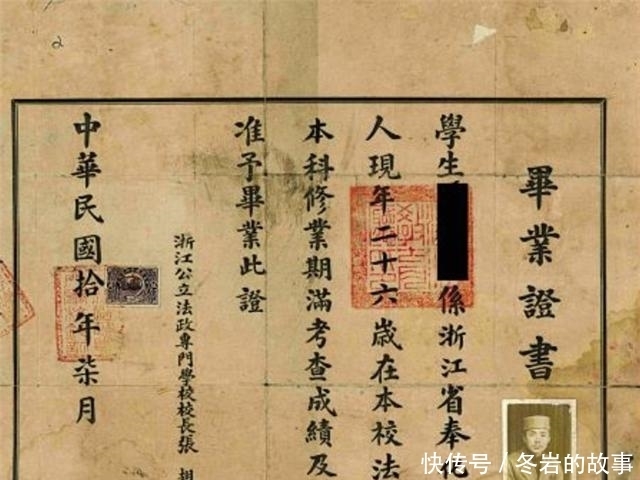 畢業證書
學生 係浙江省奉化
人現年二十六歲在本校法
本科修業期滿考查成績及
准予畢業此證
浙江公立法政專門學校校長張
中華民國拾年柒月
2
快传号/冬岩的故事